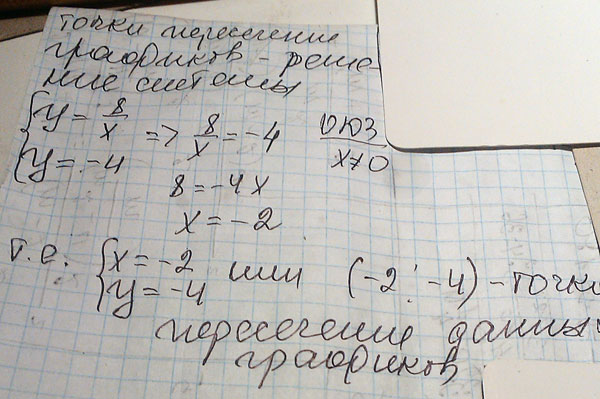 точки пересечение
графиков - реше-
ние системы
{ y = 8/x => 8/x = -4 ОДЗ
{ y = -4 x≠0
8 = -4x
x = -2
т.е. { x = -2 или (-2; -4) - точки
{ y = -4
пересечение данных
графиков